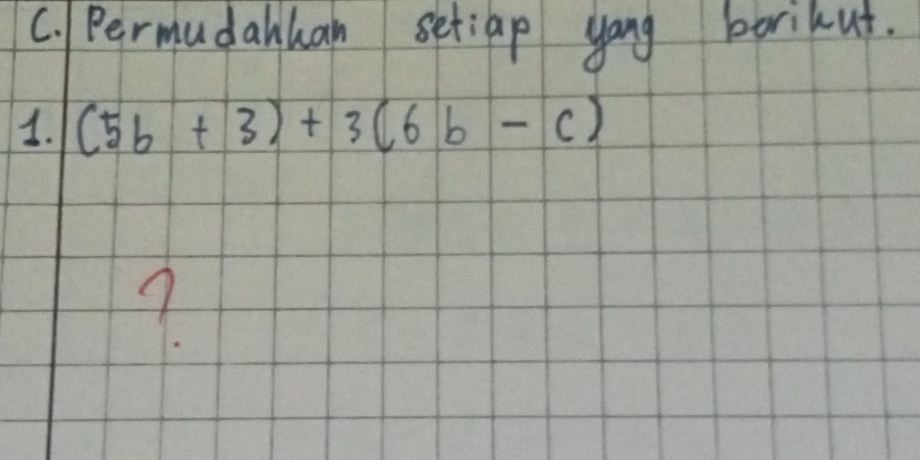 C. Permudahkan setiap yang berikut.
1. (5b + 3) + 3(6b - c)
?